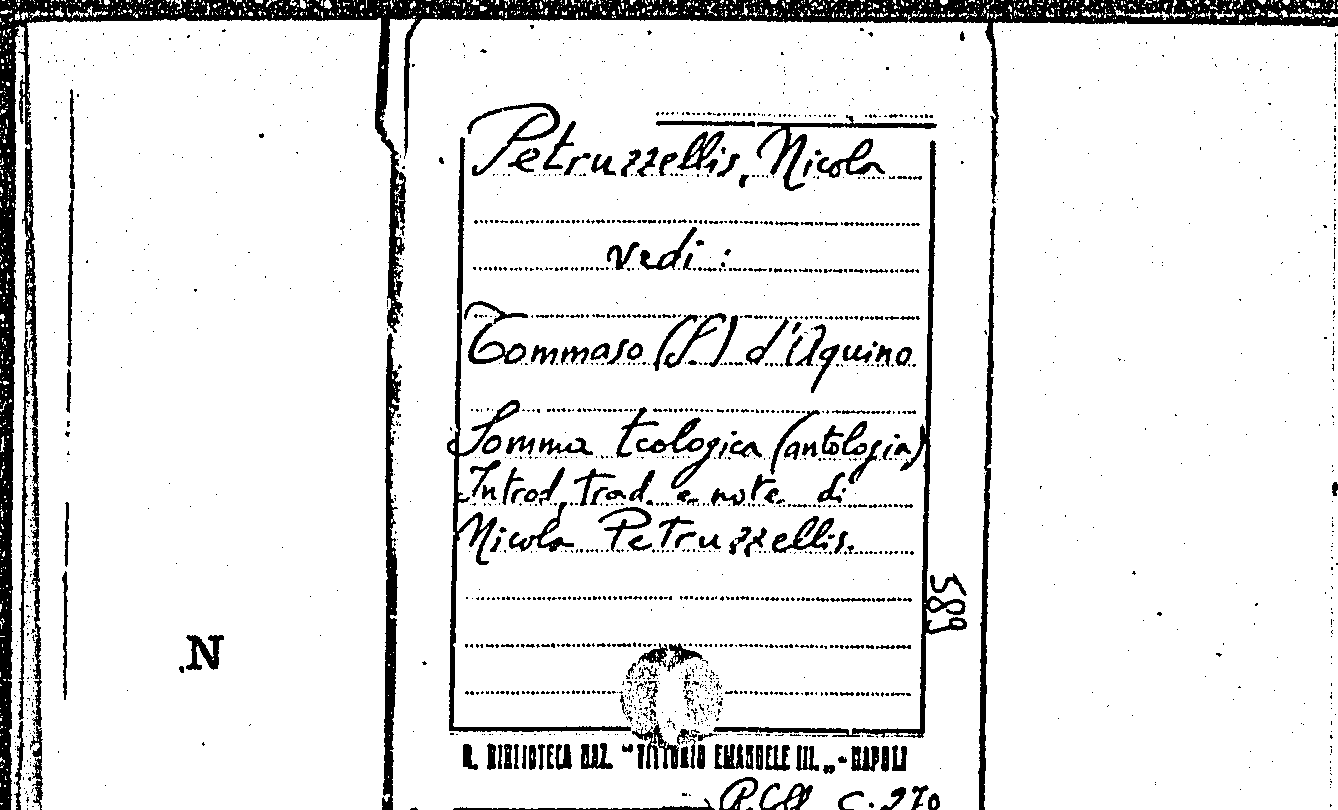 Petruzzellis, Nicola
vedi :
Tommaso (S.) d'Aquino
Somma teologica (antologia)
Introd. trad. e note di
Nicola Petruzzellis.
589
N.
R. BIBLIOTECA NAZ. "VITTORIO EMANUELE III. „ - NAPOLI
C. 270